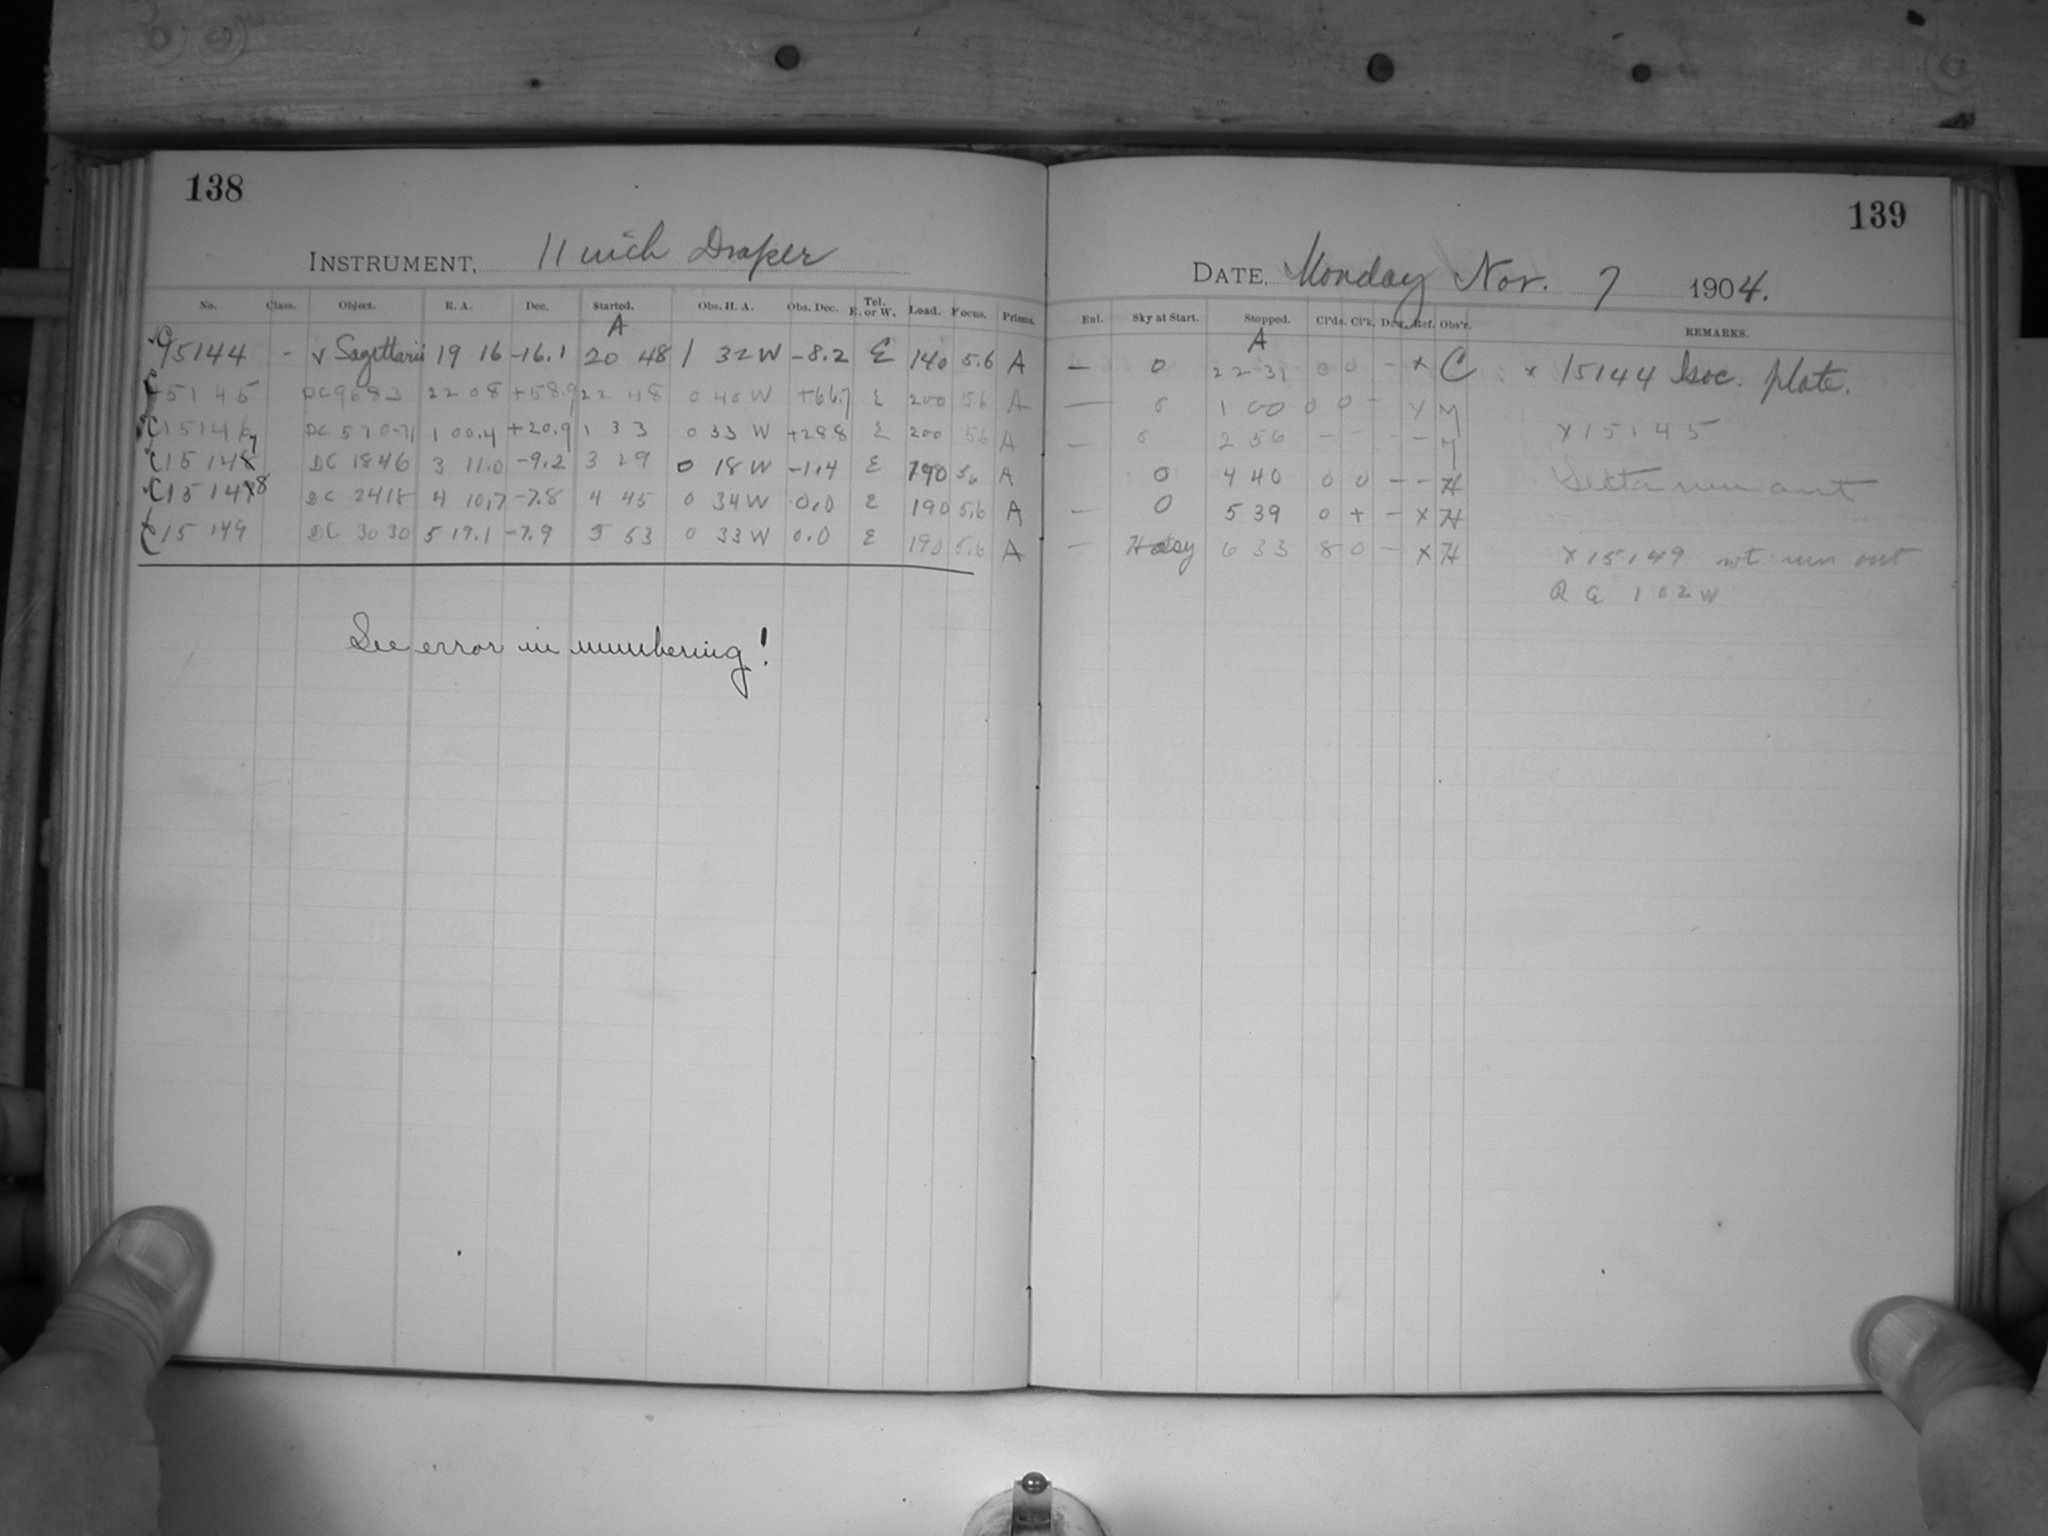 138
INSTRUMENT, 11 inch Draper
No. Class. Object. R. A. Dec. Started. Obs. H. A. Obs. Dec. Tel. E. or W. Load. Focus. Prisms.
A
C15144 - v Sagittarii 19 16 -16.1 20 48 1 32 W -8.2 E 140 5.6 A
C15145 DC9683 22 08 +58.9 22 48 0 40 W +66.7 E 200 5.6 A
DC 570-71 1 00.4 +20.9 1 33 0 33 W +28.8 E 200 56 A
DC 1846 3 11.0 -9.2 3 29 0 18 W -1.4 E 190 5.6 A
DC 2418 4 10.7 -7.8 4 45 0 34 W 0.0 E 190 5.6 A
C15149 DC 3030 5 19.1 -7.9 5 53 0 33 W 0.0 E 190 5.6 A
See error in numbering!
139
DATE, Monday Nov. 7 1904.
Enl. Sky at Start. Stopped. Cl'ds. Cl'k. Dew. Ref. Obs'r. REMARKS.
A
— 0 22 31 0 0 - x C x 15144 Isoc. plate.
— 0 1 00 0 0 - x M
— 0 2 56 - - - - M x 15145
0 4 40 0 0 - - H run out
— 0 5 39 0 + - x H
— Hazy 6 33 8 0 - x H x 15149 not run out
R G 1 02 W